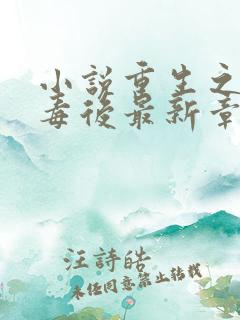 小說重生之
毒後最新章
汪詩皓
未經同意禁止轉載